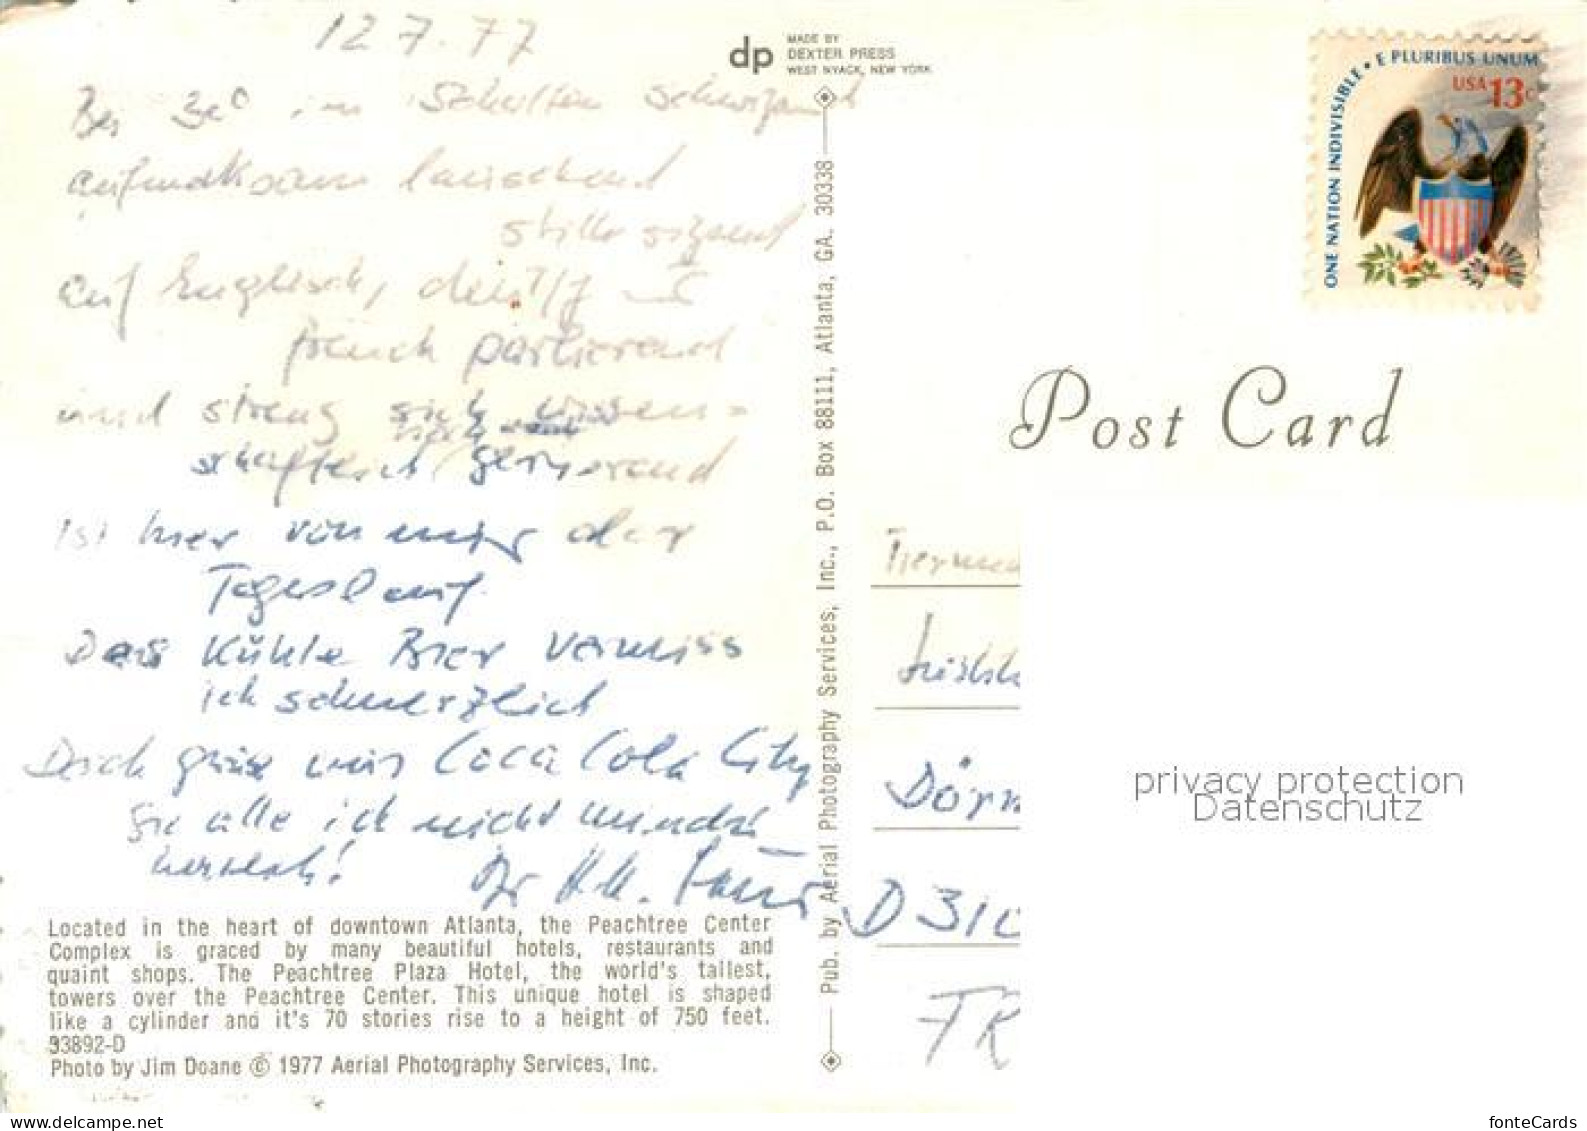 12 7. 77
Bei 30° im Schatten schwizend
aufmerksam lauschend
stille sizend
auf Englisch, deutsch u
french parlierend
und streng sich wissen=
schaftlich gerierend
Ist hier von mir der
Tageslauf
Das Kühle Bier vermiss
ich schmerzlich
Doch grüsse aus Coca Cola City
Sie alle ich nicht minder
herzlich!
Dr H.H.
Located in the heart of downtown Atlanta, the Peachtree Center
Complex is graced by many beautiful hotels, restaurants and
quaint shops. The Peachtree Plaza Hotel, the world's tallest,
towers over the Peachtree Center. This unique hotel is shaped
like a cylinder and it's 70 stories rise to a height of 750 feet.
93892-D
Photo by Jim Doane © 1977 Aerial Photography Services, Inc.
dp
MADE BY
DEXTER PRESS
WEST NYACK, NEW YORK
Pub. by Aerial Photography Services, Inc., P.O. Box 88111, Atlanta, GA. 30338
ONE NATION INDIVISIBLE • E PLURIBUS UNUM
USA 13c
Post Card
Dörn
D 310
privacy protection
Datenschutz
fonteCards